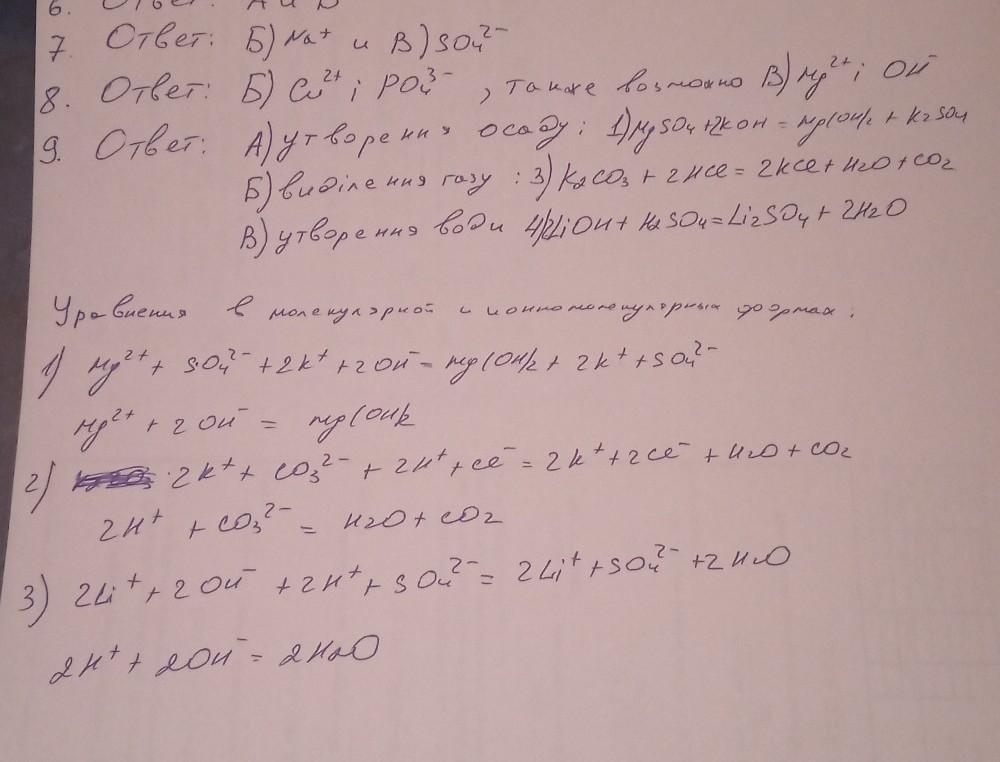 6. Ответ: А и В
7. Ответ: Б) Na⁺ и В) SO₄²⁻
8. Ответ: Б) Cu²⁺ і PO₄³⁻, также возможно В) Mg²⁺ і OH⁻
9. Ответ: А) утворення осаду: 1) MgSO₄+2KOH = Mg(OH)₂ + K₂SO₄
Б) виділення газу: 3) K₂CO₃ + 2HCl = 2KCl + H₂O + CO₂
В) утворення води 4) 2LiOH + H₂SO₄ = Li₂SO₄ + 2H₂O
Уравнения в молекулярной и ионномолекулярных формах:
1) Mg²⁺ + SO₄²⁻ + 2K⁺ + 2OH⁻ = Mg(OH)₂ + 2K⁺ + SO₄²⁻
Mg²⁺ + 2OH⁻ = Mg(OH)₂
2) 2K⁺ + CO₃²⁻ + 2H⁺ + Cl⁻ = 2K⁺ + 2Cl⁻ + H₂O + CO₂
2H⁺ + CO₃²⁻ = H₂O + CO₂
3) 2Li⁺ + 2OH⁻ + 2H⁺ + SO₄²⁻ = 2Li⁺ + SO₄²⁻ + 2H₂O
2H⁺ + 2OH⁻ = 2H₂O